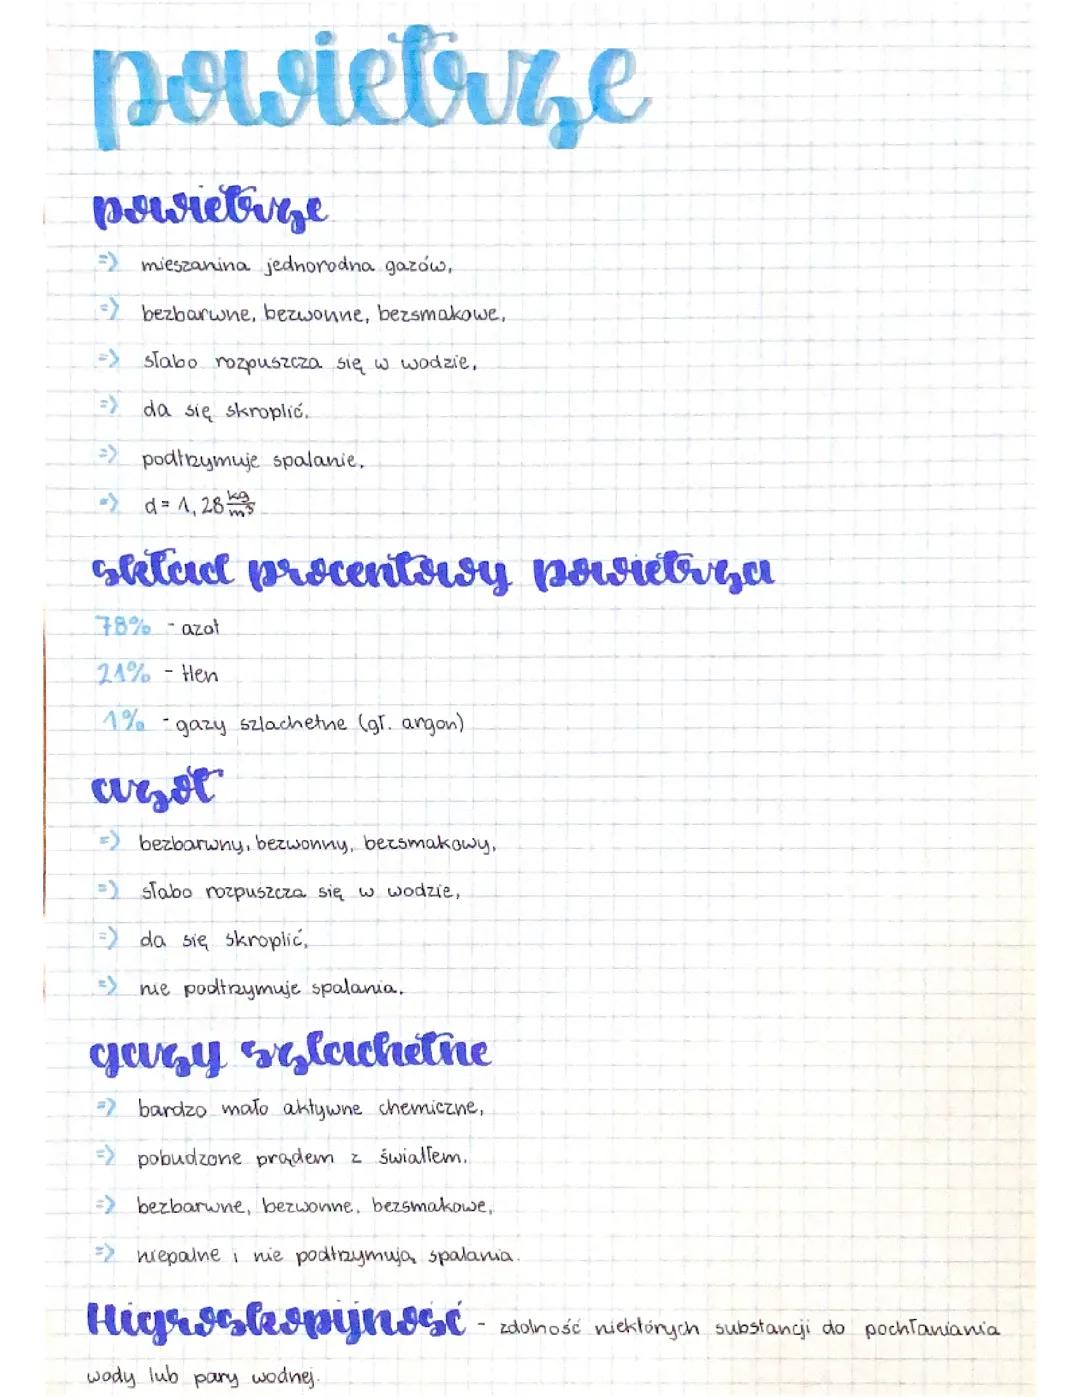 powietrze
powietrze
=> mieszanina jednorodna gazów,
=> bezbarwne, bezwonne, bezsmakowe,
=> słabo rozpuszcza się w wodzie,
=> da się skroplić.
=> podtrzymuje spalanie.
=> d = 1,28 kg/m³
skład procentowy powietrza
78% - azot
21% - tlen
1% - gazy szlachetne (gł. argon)
azot
=> bezbarwny, bezwonny, bezsmakowy,
=> słabo rozpuszcza się w wodzie,
=> da się skroplić,
=> nie podtrzymuje spalania.
gazy szlachetne
=> bardzo mało aktywne chemiczne,
=> pobudzone prądem z światłem.
=> bezbarwne, bezwonne, bezsmakowe,
=> niepalne i nie podtrzymują spalania.
Higroskopijność - zdolność niektórych substancji do pochłaniania
wody lub pary wodnej.